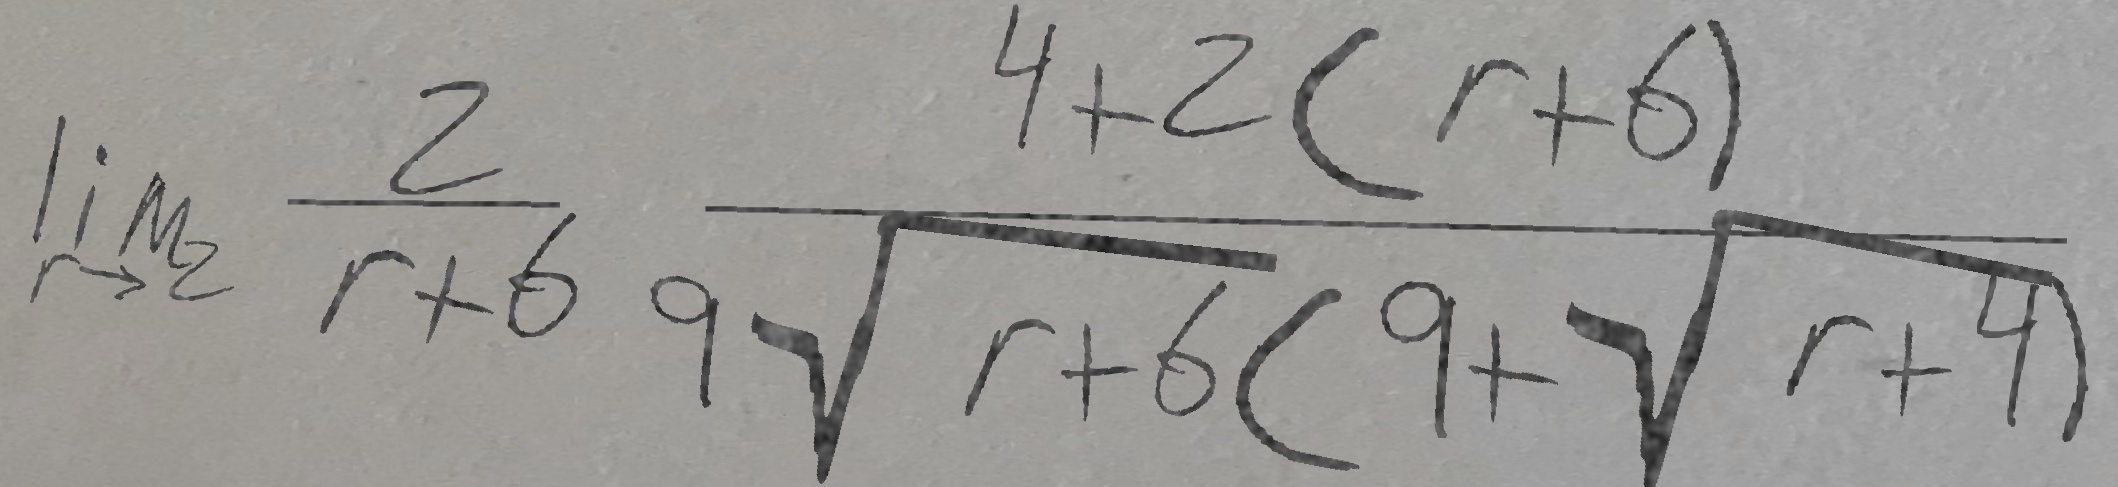 \lim_{r \to 2} \frac{2}{r+6} \frac{4+2(r+6)}{9\sqrt{r+6}(9+\sqrt{r+4})}